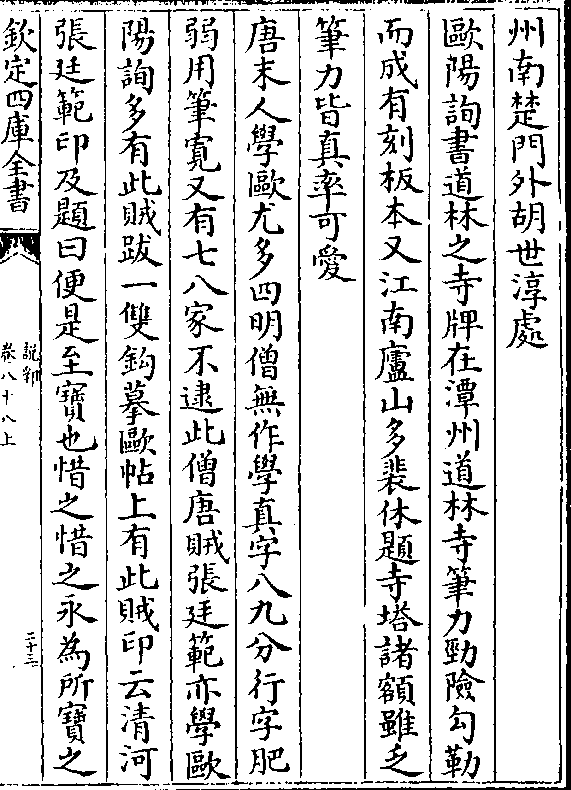 州南楚門外胡世淳處
歐陽詢書道林之寺牌在潭州道林寺筆力勁險勾勒
而成有刻板本又江南廬山多裴休題寺塔諸額雖乏
筆力皆真率可愛
唐末人學歐尤多四明僧無作學真字八九分行字肥
弱用筆寛又有七八家不逮此僧唐賊張廷範亦學歐
陽詢多有此賊跋一雙鈎摹歐帖上有此賊印云清河
張廷範印及題曰便是至寳也惜之惜之永為所寳之
欽定四庫全書
說郛
卷八十八上
二十三